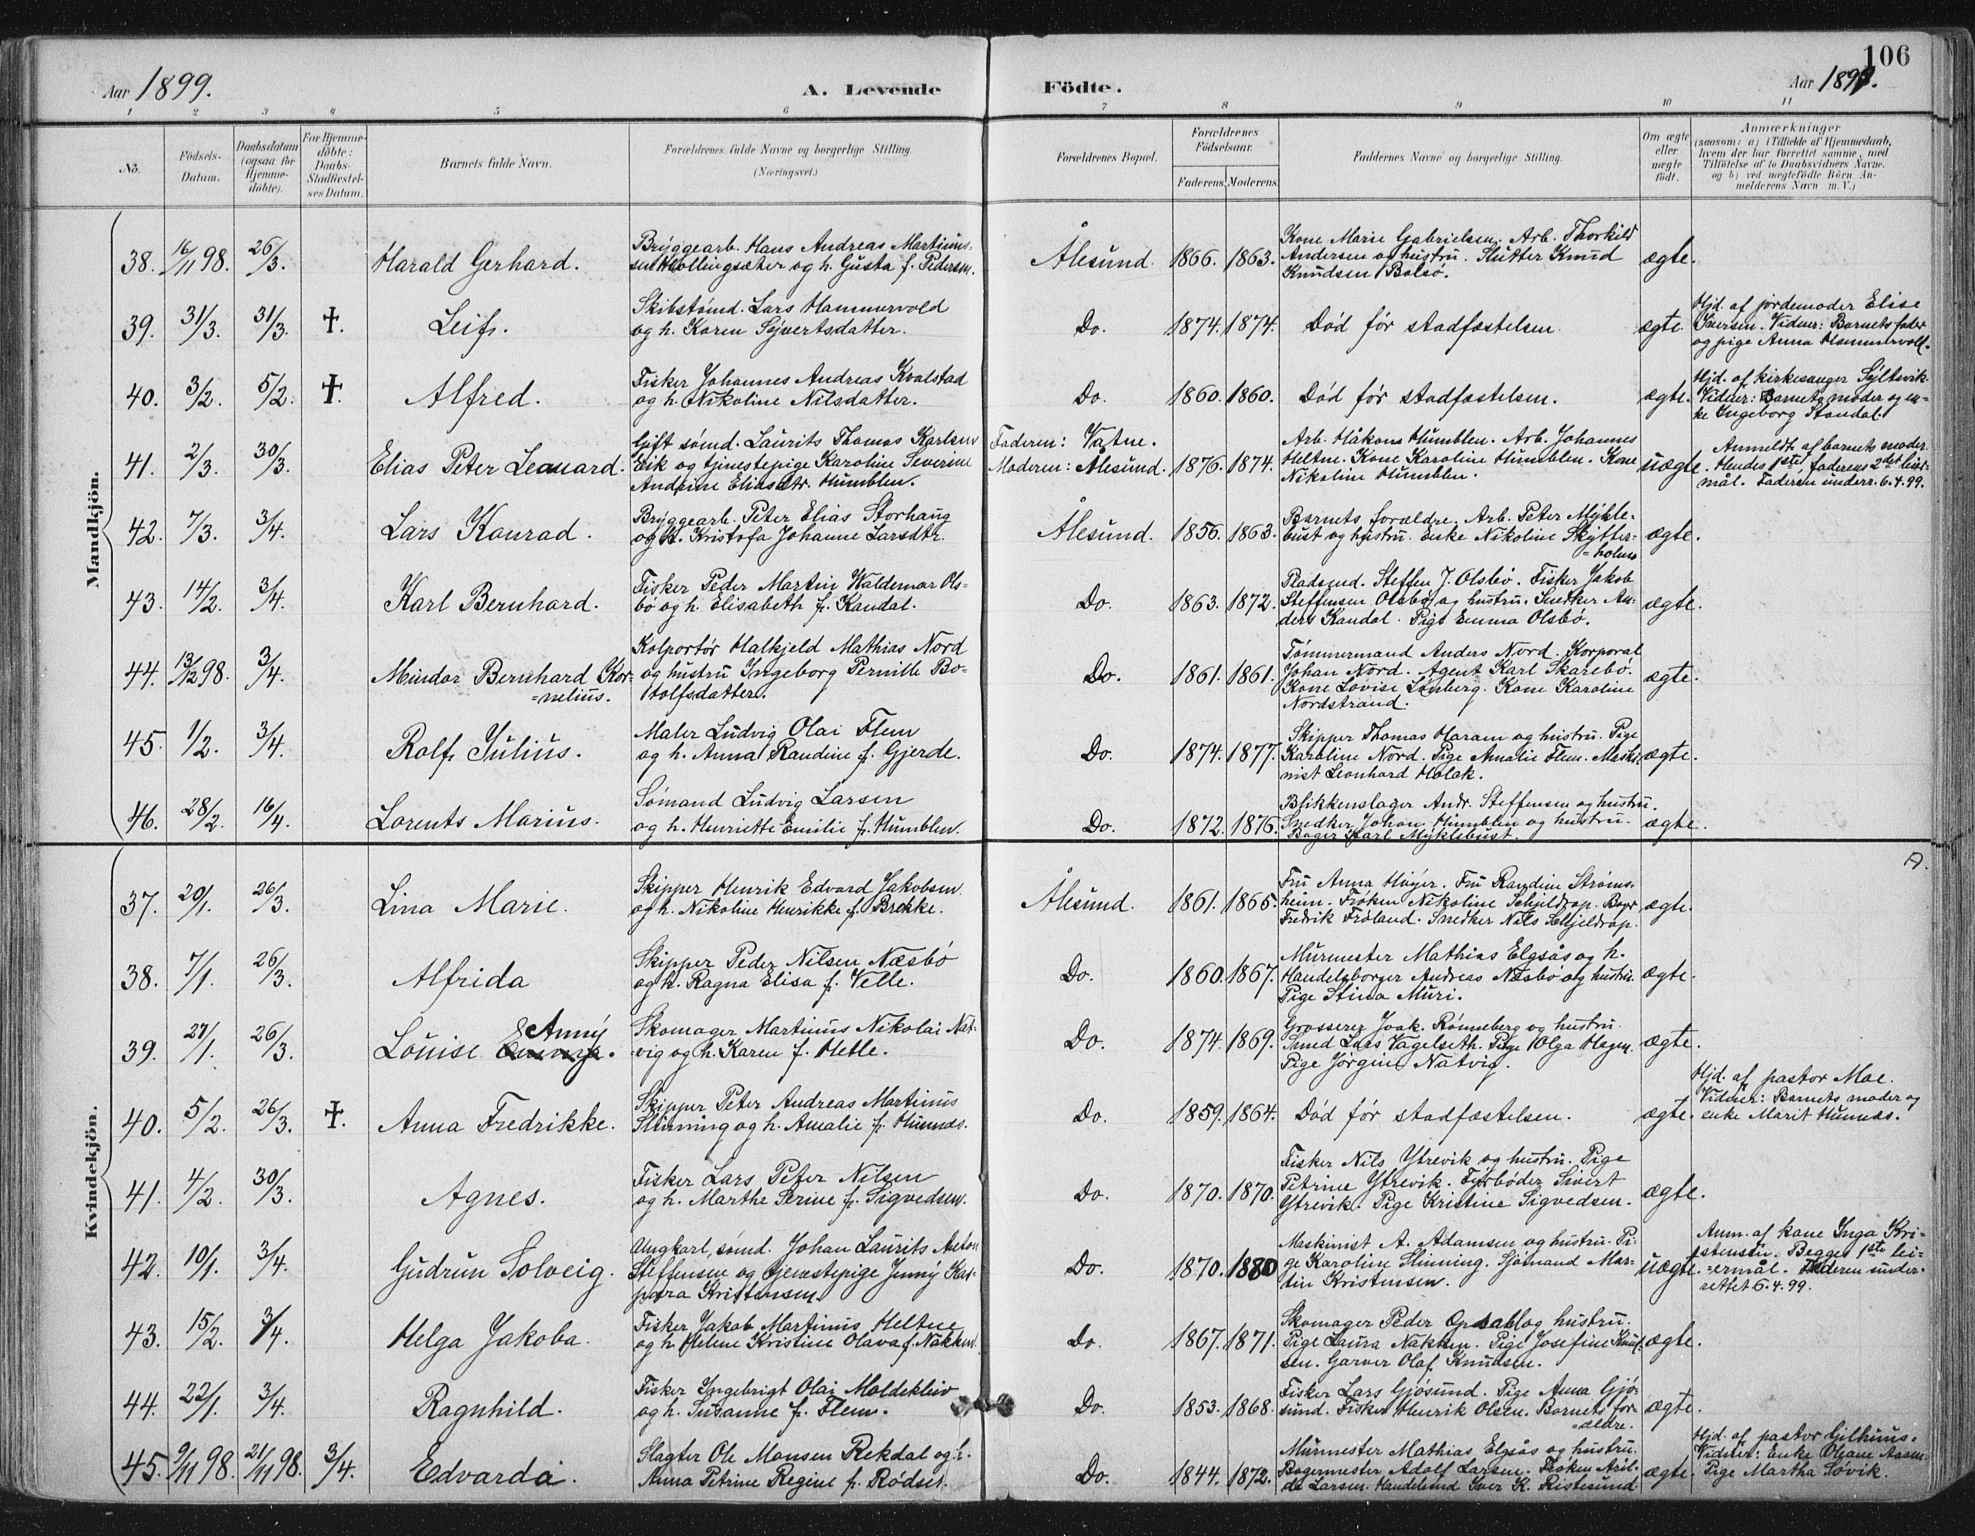 106
Aar 1899.
A. Levende Födte.
Aar 1899.
1 2 3 4 5 6 7 8 9 10 11
No.
Födsels-Datum.
Daabsdatum (ogsaa for Hjemme-döbte).
For Hjemme-döbte: Daabs-Stadfæstel-ses Datum.
Barnets fulde Navn.
Forældrenes fulde Navne og borgerlige Stilling
(Næringsvei.)
Forældrenes Bopæl.
Forældrenes Födselsaar.
Faderens. Moderens.
Faddernes Navne og borgerlige Stilling.
Om ægte eller uægte födt.
Anmærkninger
(saasom: a) Tilfælde af Hjemmedaab, hvem der har forrettet samme, med Tilföielse af to Daabsvidners Navne. og b) ved uægtefödte Börn An-melderens Navn m. V.)
Mandkjön.
38. 16/11 98. 26/3. Harald Gerhard.
Bryggearb. Hans Andreas Martinus-
sen Hollingsæter og h. Gusta f. Pedersen.
Ålesund. 1866. 1863.
Kone Marie Gabrielsen. Arb. Thorkild
Andersen og hustru. Slutter Knud
Knudsen Bolsö.
ægte.
39. 31/3. 31/3. ✝. Leif.
Skibstömd. Lars Hammervold
og h. Karen Sjvertsdatter.
Do. 1874. 1874. Död för stadfæstelsen ægte.
Hjd. af jordemoder Elise
Iversen. Vidner: Barnets fader
og pige Anna Hammervoll.
40. 3/2. 5/2. ✝. Alfred.
Fisker Johannes Andreas Kvalstad
og h. Nikoline Nilsdatter.
Do. 1860. 1860. Död för stadfæstelsen. ægte.
Hjd. af kirkesanger Syltevik
Vidner: Barnets moder og en-
ke Ingeborg Standal.
41. 2/3. 30/3. Elias Peter Leonard.
Gift sömd. Laurits Thomas Karlsen
Eik og tjenestepige Karoline Severine
Andrine Eliasdtr. Humblen.
Faderen: Vatne.
Moderen: Ålesund. 1876. 1874.
Arb. Håkon Humblen. Arb. Johannes
Heltne. Kone Karoline Humblen. Kone
Nikoline Humblen.
uægte.
Anmeldt af barnets moder
Hendes 1ste, faderens 2det leier-
mål. Faderen underr. 6.4.99.
42. 7/3. 3/4. Lars Konrad.
Bryggearb. Peter Elias Storhaug
og h. Kristofa Johanne Larsdtr.
Ålesund. 1856. 1863.
Barnets forældre. Arb. Peter Mykle-
bust og hustru. Enke Nikoline Skytter-
=holms
ægte.
43. 14/2. 3/4. Karl Bernhard.
Fisker Peder Martin Waldemar Ols-
bö og h. Elisabeth f. Kandal.
Do. 1863. 1872.
Pladsmd. Steffen J. Olsbö. Fisker Jakob
Steffensen Olsbö og hustru. Snedker An-
ders Kandal. Pige Emma Olsbö.
ægte.
44. 13/12 98. 3/4. Mindor Bernhard Kor-
=nelius.
Kolportör Halkjeld Mathias Nord
og hustru Ingeborg Pernille Bo-
tolfsdatter.
Do. 1861. 1861.
Tömmermand Anders Nord. Korporal
Johan Nord. Agent Karl Skarebö.
Kone Lovise Lönberg. Kone Karoline
Nordstrand.
ægte.
45. 1/2. 3/4. Rolf Julius.
Maler Ludvig Olai Flem
og h. Anna Randine f. Gjerde.
Do. 1874. 1877.
Skipper Thomas Haram og hustru. Pige
Karoline Nord. Pige Amalie Flem. Maski-
nist Leonhard Holck.
ægte.
46. 28/2. 16/4. Lorents Marius.
Sömand Ludvig Larsen
og h. Henriette Emilie f. Humblen.
Do. 1872. 1876.
Blikkenslager Andr. Steffensen og hustru.
Snedker Johan Humblen og hustru.
Bager Karl Myklebust.
ægte.
Kvindekjön.
37. 20/1. 26/3. Lina Marie.
Skipper Henrik Edvard Jakobsen
og h. Nikoline Henrikke f. Brekke.
Ålesund. 1861. 1865.
Fru Anna Höyer. Fru Randine Ströms-
heim. Fröken Nikoline Schjeldrop. Bager
Fredrik Fröland. Snedker Nils Schjeldrop.
ægte.
38. 7/1. 26/3. Alfrida
Skipper Peder Nilsen Næsbö
og h. Ragna Elisa f. Velle.
Do. 1860. 1867.
Murmester Mathias Elgsås og h.
Handelsborger Andreas Næsbö og hustru.
Pige Stina Muri.
ægte.
39. 27/1. 26/3. Louise Anny.
Skomager Martinus Nikolai Nat-
vig og h. Karen f. Hetle.
Do. 1874. 1869.
Grosserer Joak. Rönneberg og hustru.
Smed Lars Vagelseth. Pige Olga Hagen.
Pige Jörgine Natvig.
ægte.
40. 5/2. 26/3. ✝. Anna Fredrikke.
Skipper Peter Andreas Martinus
Slinning og h. Amalie f. Humnæs.
Do. 1859. 1864. Död för stadfæstelsen. ægte.
Hjd. af pastor Moe.
Vidner: Barnets moder og
enke Marit Humnæs.
41. 4/2. 30/3. Agnes.
Fisker Lars Peter Nilsen
og h. Marthe Serine f. Sigvedsen.
Do. 1870. 1870.
Fisker Nils Ytrevik og hustru. Pige
Petrine Ytrevik. Fyrböder Sivert
Ytrevik. Pige Kristine Sigvedsen.
ægte.
42. 10/1. 3/4. Gudrun Solveig.
Ungkarl, sömd. Johan Laurits Anton
Steffensen og tjenestepige Jenny Kas-
para Kristensen.
Do. 1870. 1880
Maskinist A. Adamsen og hustru. Pi-
ge Karoline Slinning. Sjömand Mar-
tin Kristensen.
uægte.
Anm. af kone Inga Kri-
stensen. Begges 1ste lei-
=ermål. Faderen under-
rettet 6.4.99.
43. 15/2. 3/4. Helga Jakoba.
Fisker Jakob Martinus Heltne
og h. Helene Kristine Olava f. Nakken.
Do. 1867. 1871.
Skomager Peder Opsahl og hustru.
Pige Laura Nakken. Pige Josefine Knud-
sen. Garver Olaf Knudsen.
ægte.
44. 22/1. 3/4. Ragnhild.
Fisker Ingebrigt Olai Moldekleiv
og h. Susanne f. Flem.
Do. 1853. 1868.
Fisker Lars Gjösund. Pige Anna Gjö-
sund. Fisker Henrik Olsen. Barnets for-
=ældre.
ægte.
45. 9/11 98. 21/11 98. 3/4. Edvarda.
Slagter Ole Monsen Rekdal og h.
Anna Petrine Regine f. Rödset.
Do. 1844. 1872.
Murmester Mathias Elgsås og hustru.
Bagermester Adolf Larsen. Fröken Aril-
de Larsen. Handelsmd Iver K. Ristesund
ægte.
Hjd. af pastor Gilhuus.
Vidner: Enke Oliane Aasen
Pige Martha Sövik.